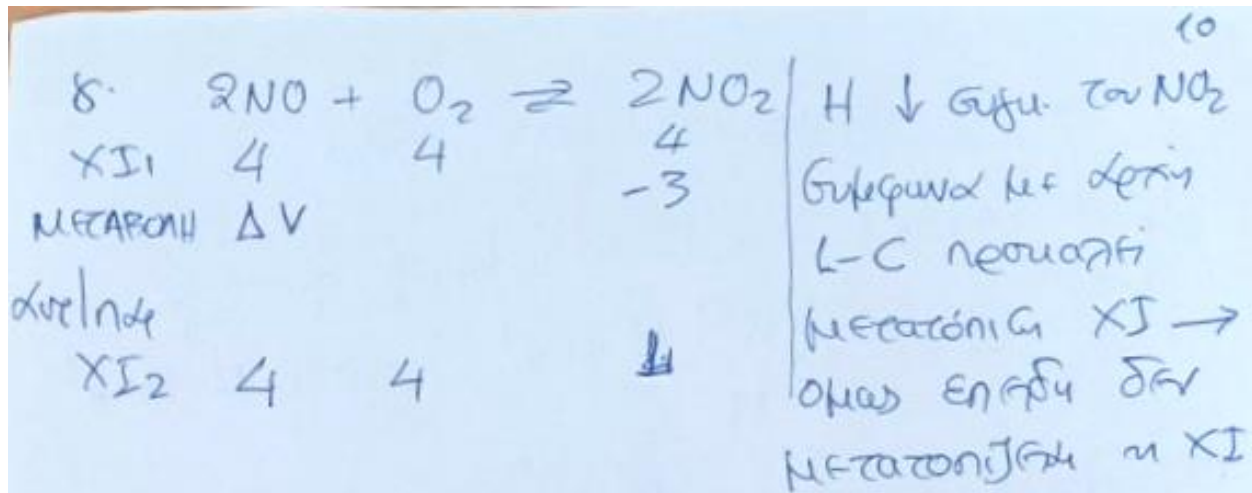 10
γ. 2NO + O₂ ⇌ 2NO₂
ΧΙ₁ 4 4 4
-3
ΜΕΤΑΒΟΛΗ ΔV
αντ/παρ
ΧΙ₂ 4 4 1
Η ↓ συγκ. του NO₂
Σύμφωνα με αρχή
L-C προκαλεί
μετατόπιση ΧΙ →
όμως επειδή δεν
μετατοπίζεται η ΧΙ